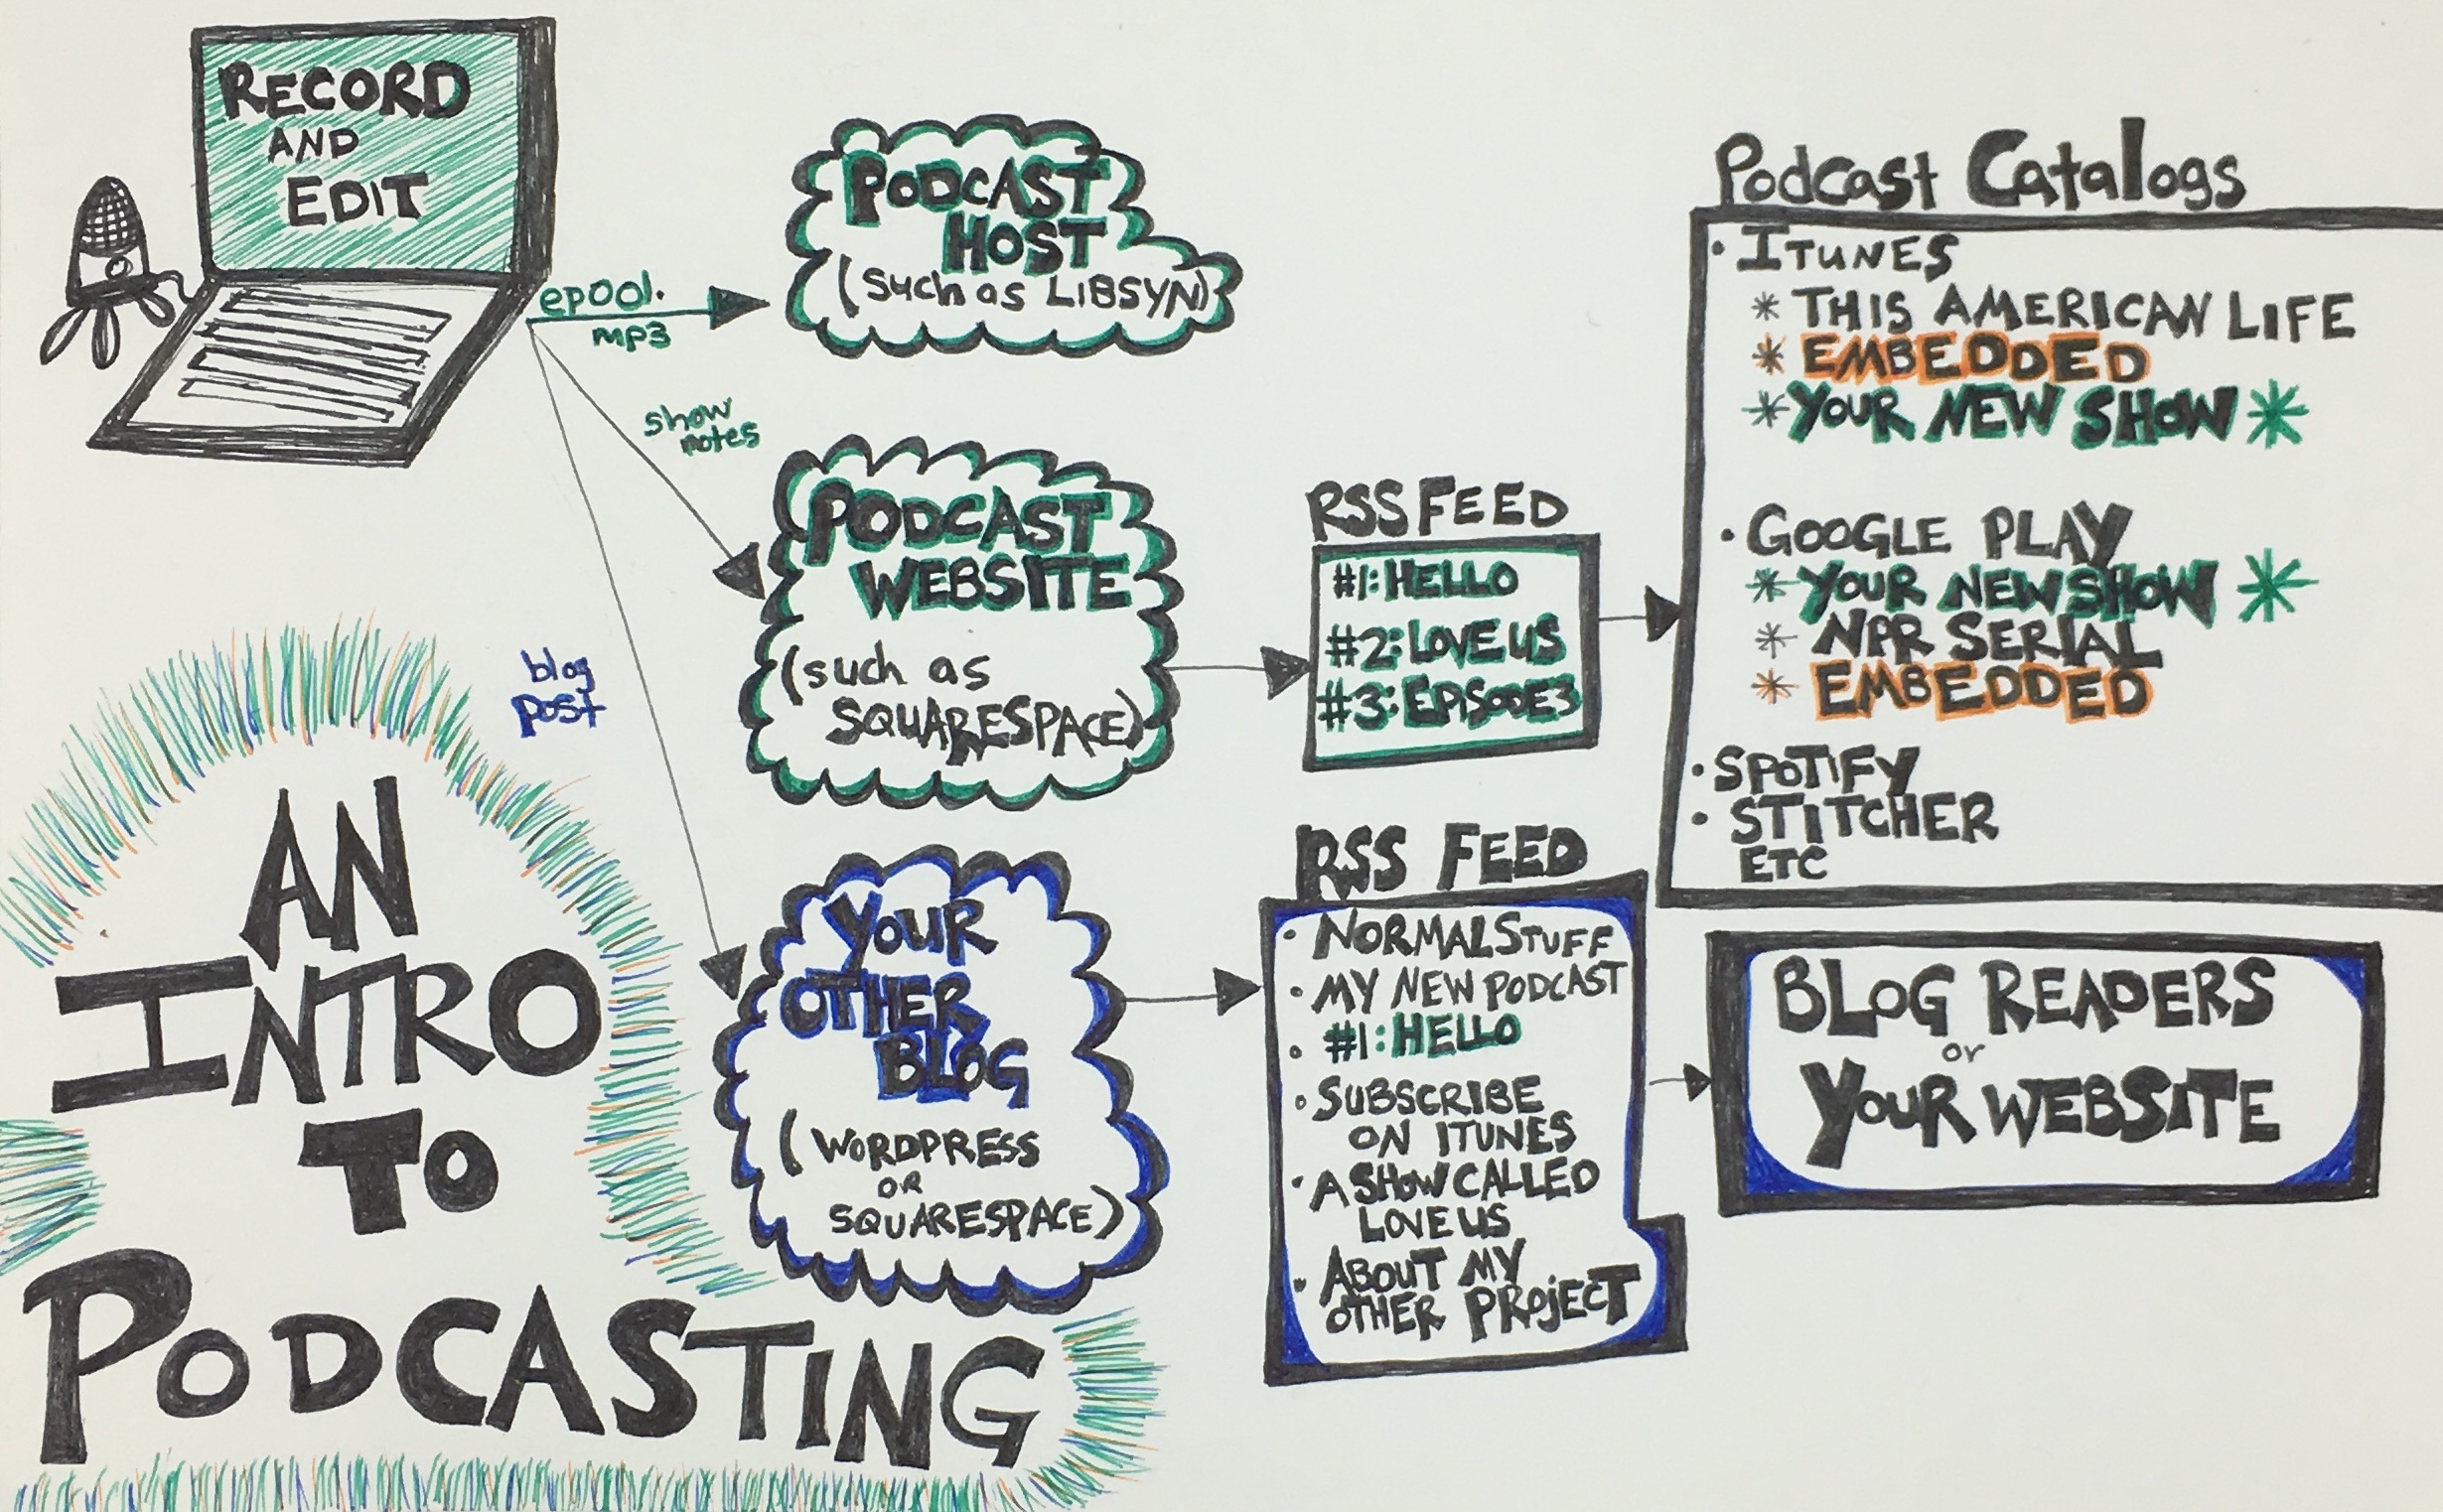 RECORD
AND
EDIT
ep001.
mp3
show
notes
blog
post
PODCAST
HOST
(such as LIBSYN)
PODCAST
WEBSITE
(such as
SQUARESPACE)
YOUR
OTHER
BLOG
(WORDPRESS
OR
SQUARESPACE)
RSS FEED
#1: HELLO
#2: LOVE US
#3: EPISODE 3
RSS FEED
• NORMAL STUFF
• MY NEW PODCAST
• #1: HELLO
• SUBSCRIBE
ON ITUNES
• A SHOW CALLED
LOVE US
• ABOUT MY
OTHER PROJECT
Podcast Catalogs
• ITUNES
* THIS AMERICAN LIFE
* EMBEDDED
* YOUR NEW SHOW *
• GOOGLE PLAY
* YOUR NEW SHOW *
* NPR SERIAL
* EMBEDDED
• SPOTIFY
• STITCHER
ETC
BLOG READERS
or
YOUR WEBSITE
AN
INTRO
TO
PODCASTING